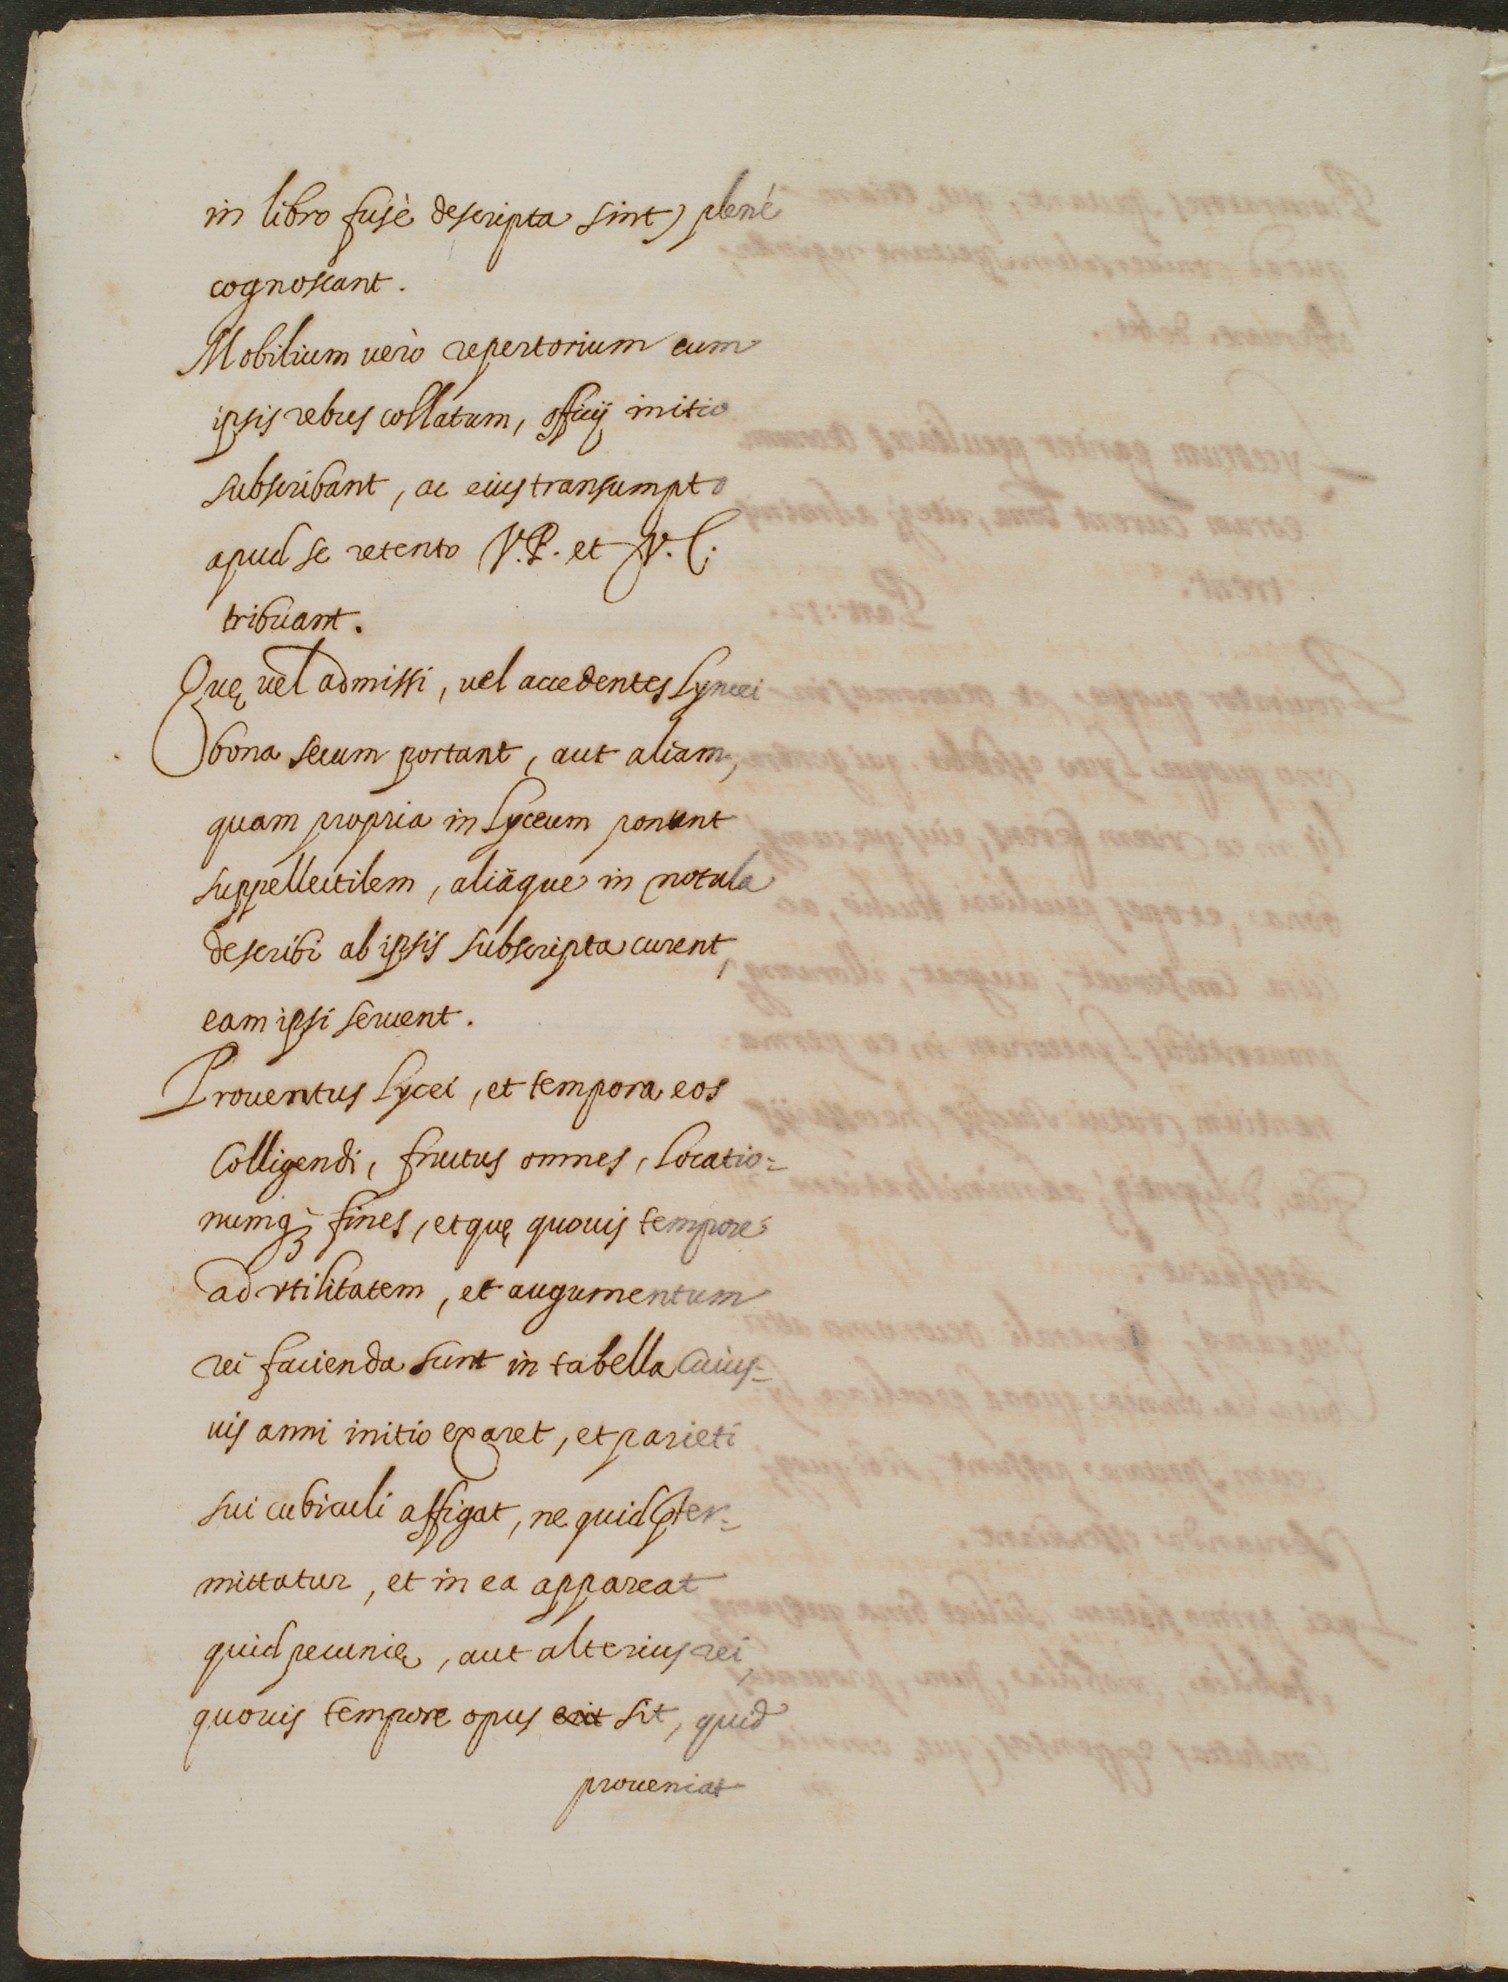 in libro fusè descripta sint) plenè
cognoscant.
Mobilium uerò repertorium cum
ipsis rebus collatum, officij initio
subscribant, ac eius transumpto
apud se retento V.P. et V.C.
tribuant.
Quę uel admissi, uel accedentes Lyncei
bona secum portant, aut aliam,
quam propria in Lyceum ponunt
suppellectilem, aliāque in notula
describi ab ipsis subscripta curent,
eam ipsi seruent.
Prouentus Lycei, et tempora eos
colligendi, fructus omnes, locatio=
numq; fines, et quę quouis tempore
ad vtilitatem, et augumentum
rei facienda sunt in tabella cuius=
uis anni initio exaret, et parieti
sui cubiculi affigat, ne quid pter=
mittatur, et in ea appareat
quid pecunię, aut alterius rei
quouis tempore opus erit sit, quid
proueniat